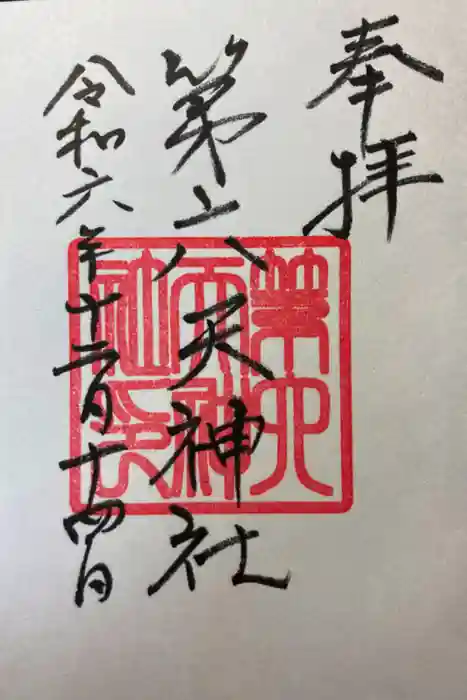 奉拝
第六天神社
令和六年十二月十四日
第六
天神
社印